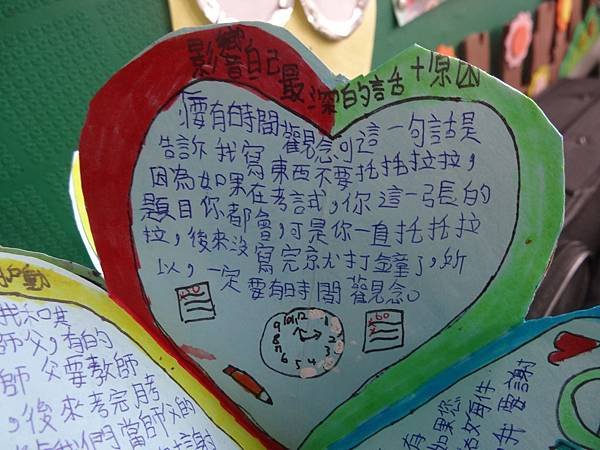 影響自己最深的話+原因
要有時間觀念可這一句話是
告訴我寫東西不要托托拉拉,
因為如果在考試,你這一張的
題目你都會,可是你一直托托拉
拉,後來沒寫完京尤打鐘了,所
以,一定要有時間觀念。
12
1
2
3
4
5
6
7
8
9
10
11
60
動
師父,有的
師父要教師
,後來考完月考
我們當師父的
謝
如果您
要謝